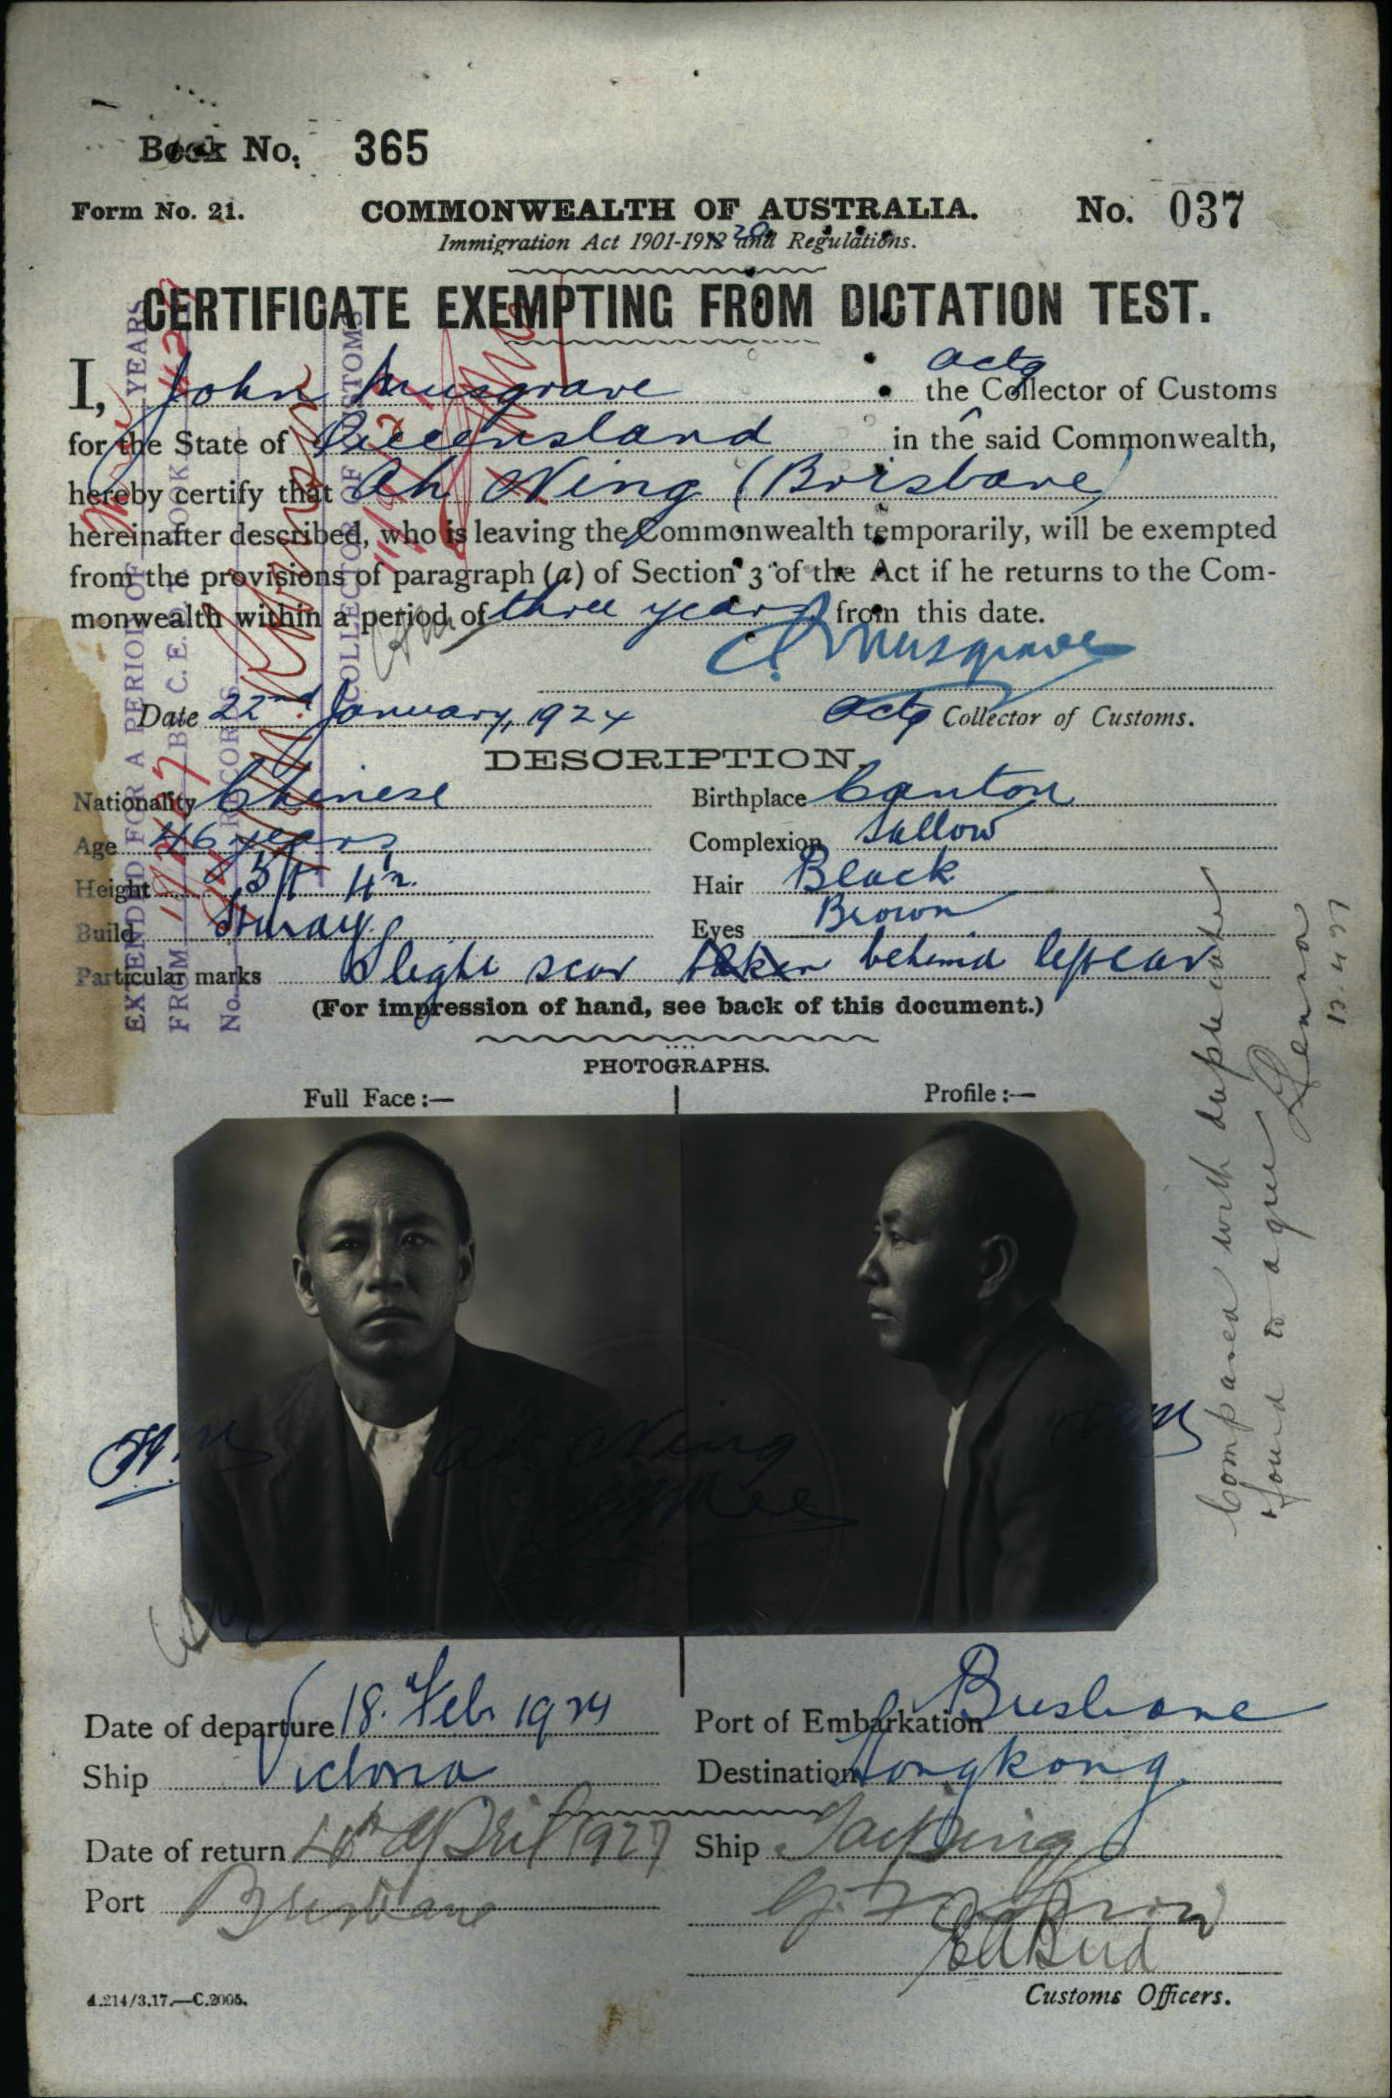 Book No. 365
Form No. 21. COMMONWEALTH OF AUSTRALIA. No. 037
Immigration Act 1901-1912 20 and Regulations.
CERTIFICATE EXEMPTING FROM DICTATION TEST.
I, John Musgrave actg the Collector of Customs
for the State of Queensland in the said Commonwealth,
hereby certify that Ah Wing (Brisbane)
hereinafter described, who is leaving the Commonwealth temporarily, will be exempted
from the provisions of paragraph (a) of Section 3 of the Act if he returns to the Com-
monwealth within a period of three years from this date.
Musgrave
Date 22nd January, 1924 Actg Collector of Customs.
DESCRIPTION.
Nationality Chinese Birthplace Canton
Age 46 years Complexion Sallow
Height 5ft 4in. Hair Black
Build Sturdy Eyes Brown
Particular marks Slight scar behind left ear
(For impression of hand, see back of this document.)
PHOTOGRAPHS.
Full Face:— Profile:—
H.M
Ah Wing
Date of departure 18. Feb. 1924 Port of Embarkation Brisbane
Ship Victoria Destination Hongkong
Date of return 4th April 1927 Ship Taiping
Port Brisbane
Customs Officers.
A.214/3.17.—C.2005.
EXTENDED FOR A PERIOD OF YEARS
FROM
No. RECORDS
COLLECTOR OF CUSTOMS
Compared with duplicate
& found to agree